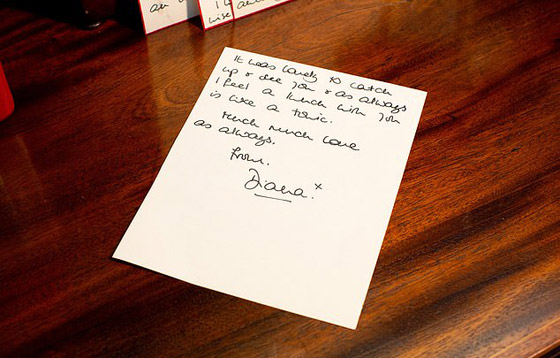 It was lovely to catch
up & see you & as always
I feel a lunch with you
is like a tonic.
Much much love
as always.
from.
Diana. x
an
I
wise